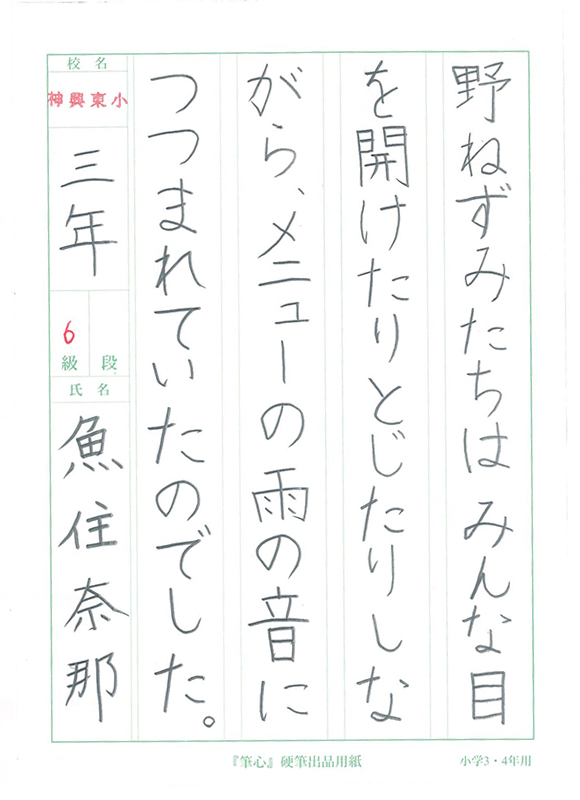 野ねずみたちは みんな目
を開けたりとじたりしな
がら、メニューの雨の音に
つつまれていたのでした。
校名
神興東小
三年
6
級 段
氏名
魚住奈那
『筆心』硬筆出品用紙
小学3・4年用